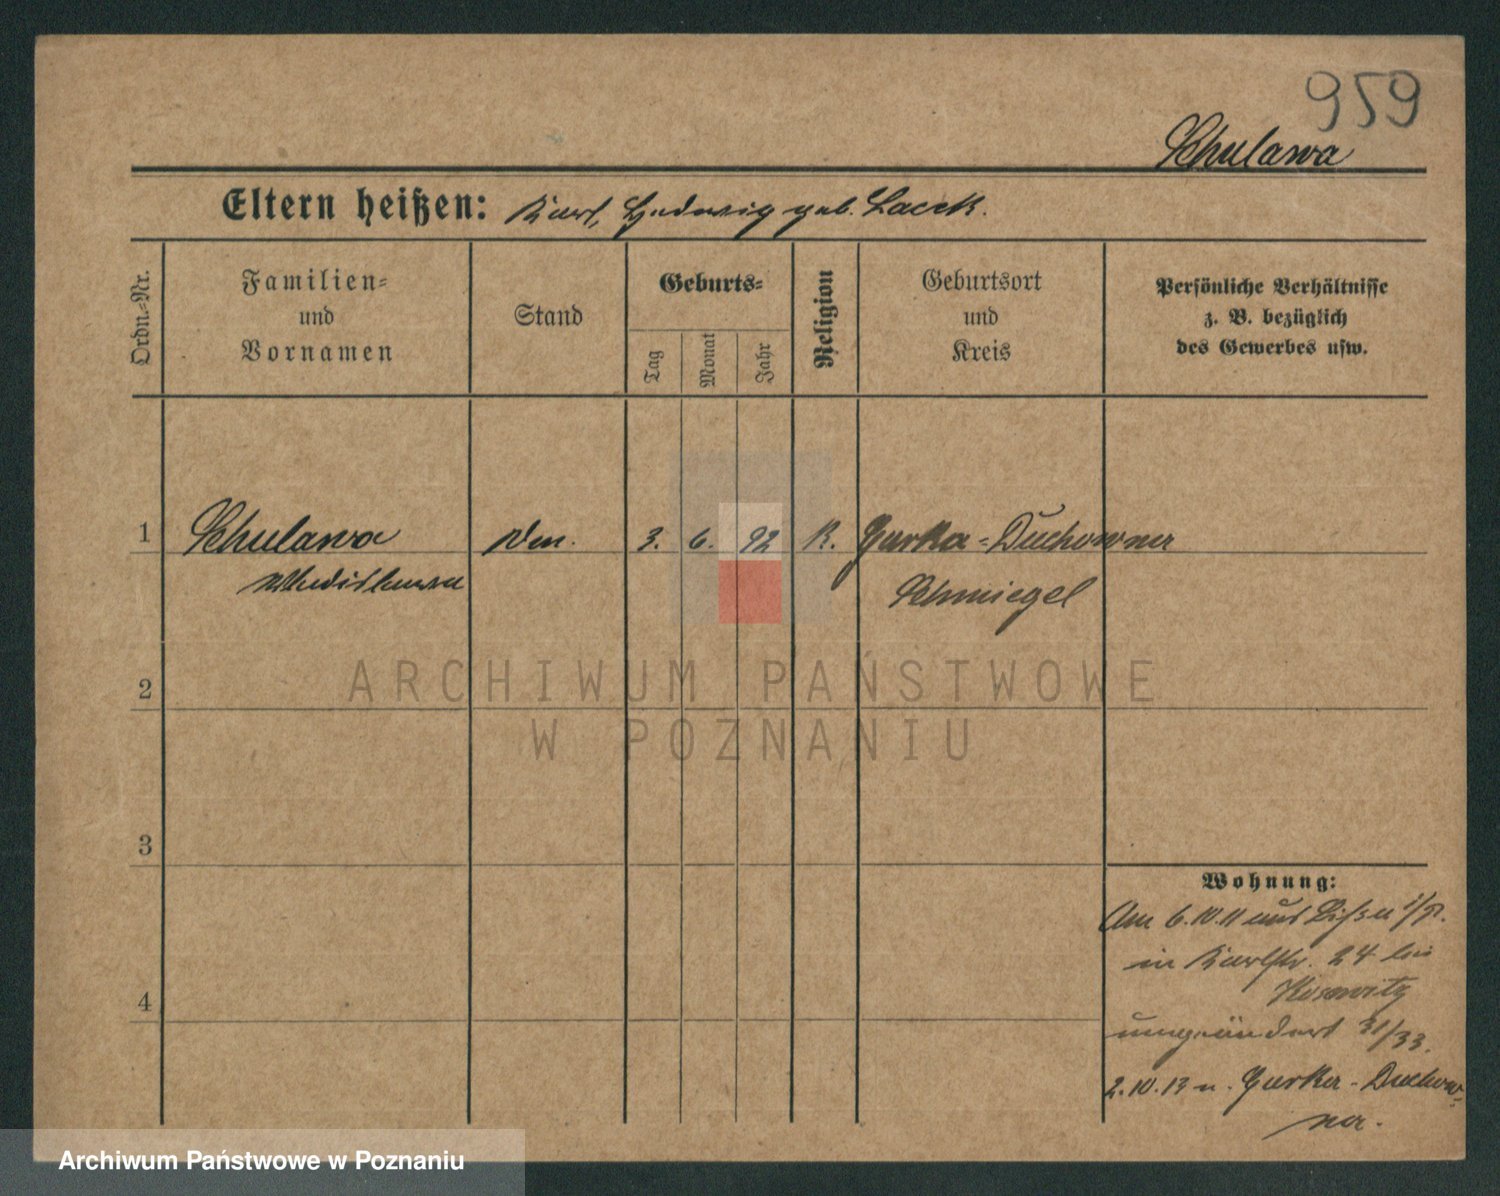 959
Schulawa
Eltern heißen: Karl, Hedwig geb. Lacek.
Ordn.-Nr.
Familien-
und
Vornamen
Stand
Geburts-
Tag
Monat
Jahr
Religion
Geburtsort
und
Kreis
Persönliche Verhältnisse
z. B. bezüglich
des Gewerbes usw.
1 Schulawa 3. 6. 92 K. Gurka-Duchowna
Wladislawa Schmiegel
2
3
4
ARCHIWUM PAŃSTWOWE
W POZNANIU
Wohnung:
Am 6.10.11 aus Lissa i/P.
in Karlstr. 24 bei
umgeändert 31/33.
2.10.13 n. Gurka-Duchow-
na.
Archiwum Państwowe w Poznaniu